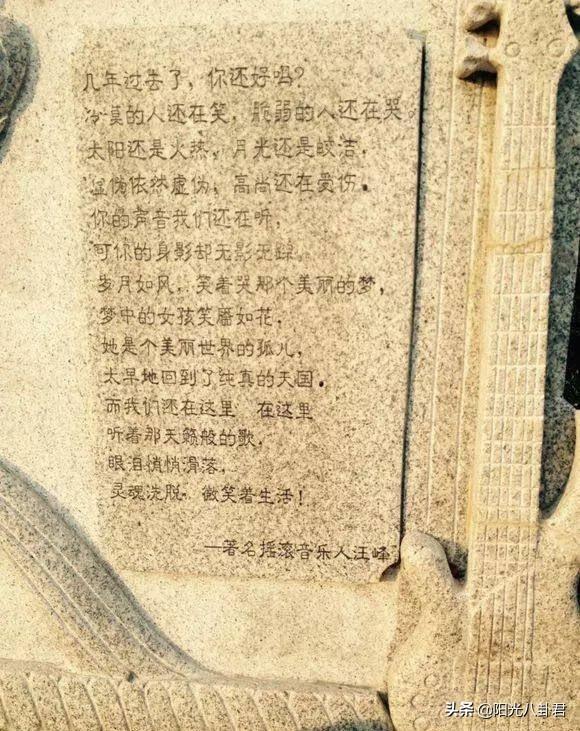 几年过去了，你还好吗？
冷漠的人还在笑，脆弱的人还在哭。
太阳还是火热，月光还是皎洁，
虚伪依然虚伪，高尚还在受伤。
你的声音我们还在听，
可你的身影却无影无踪。
岁月如风，笑着哭那个美丽的梦，
梦中的女孩笑靥如花，
她是个美丽世界的孤儿，
太早地回到了纯真的天国。
而我们还在这里 在这里
听着那天籁般的歌，
眼泪悄悄滑落，
灵魂洗脱，微笑着生活！
—著名摇滚音乐人汪峰
头条 @阳光八卦君